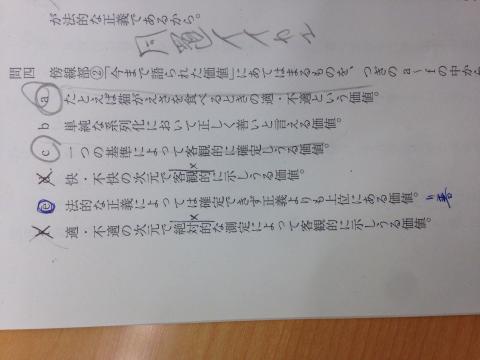 が法的な正義であるから。
問四 傍線部②「今まで語られた価値」にあてはまるものを、つぎのa~fの中から
a たとえば猫がえさを食べるときの適・不適という価値。
b 単純な系列化において正しく善いと言える価値。
c 一つの基準によって客観的に確定しうる価値。
快・不快の次元で客観的に示しうる価値。
e 法的な正義によっては確定できず正義よりも上位にある価値。
適・不適の次元で絶対的な測定によって客観的に示しうる価値。